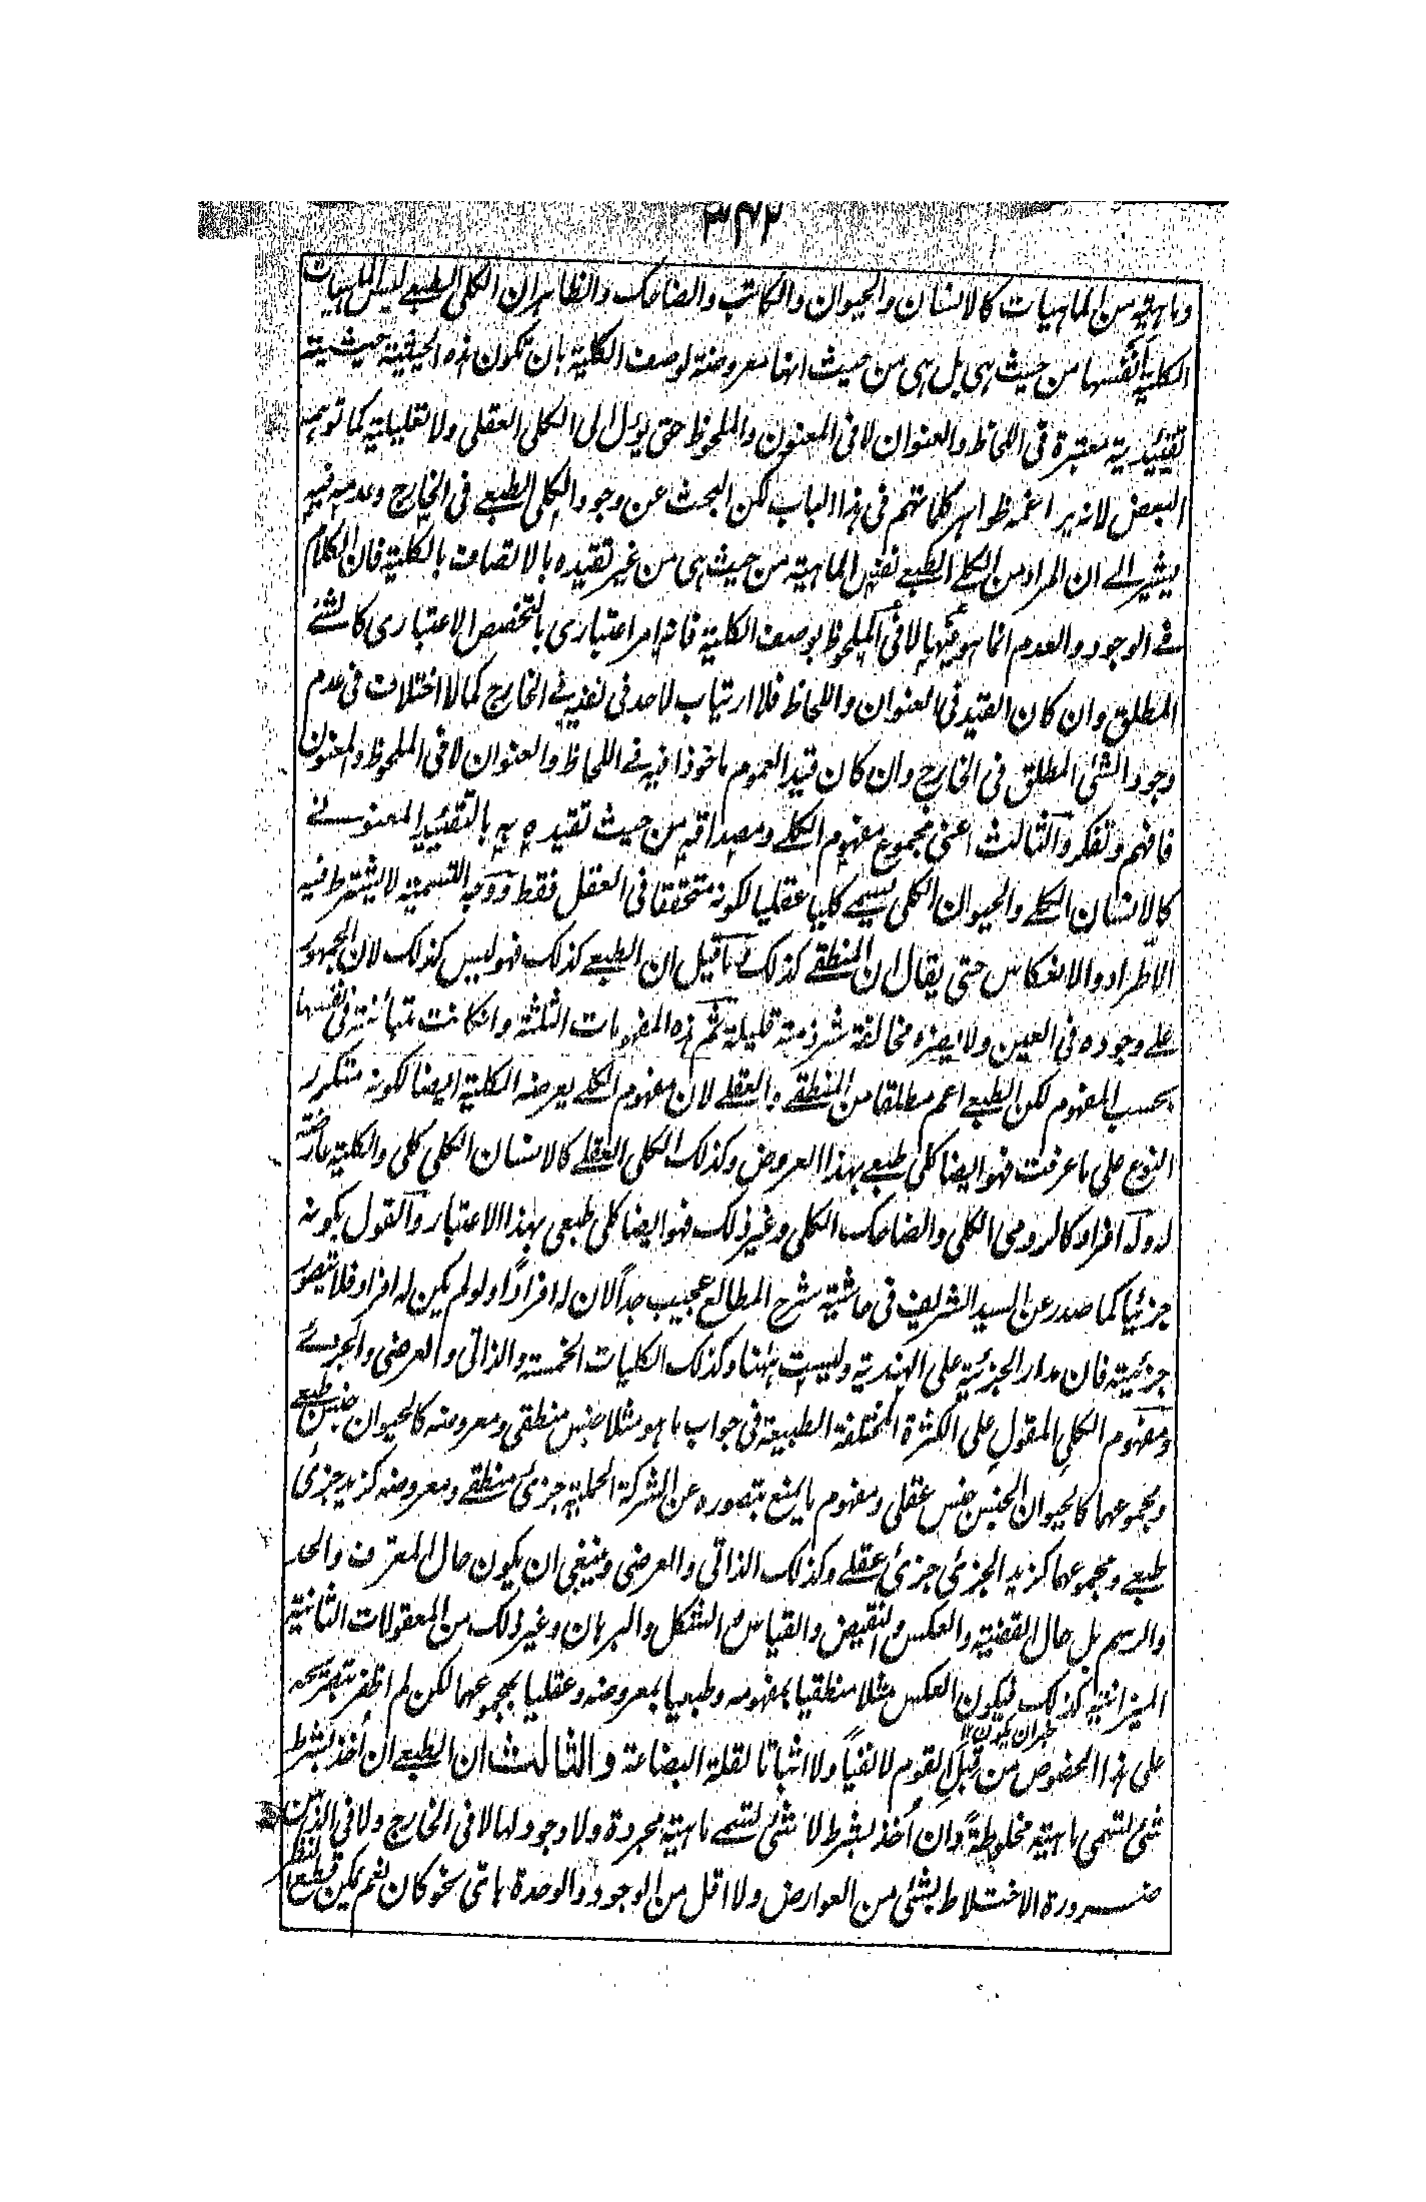 ٣٤٢
وماهية من الماهيات كالانسان والحيوان والكاتب والضاحك والظاهر ان الكلي الطبعي ليس الماهيات
الكلية بانفسها من حيث هى بل هى من حيث انها معروضة لوصف الكلية بان تكون هذه الحيثية حيثية
تقييدية معتبرة فى اللحاظ والعنوان لا فى المعنون والملحوظ حتى يؤل الى الكلى العقلى ولا تعليلية كما توهمه
البعض لانه يراغمه ظواهر كلماتهم فى هذا الباب لكن البحث عن وجود الكلى الطبعے فى الخارج وعدمه فيه
يشير الے ان المراد من الكلے الطبعے نفس الماهية من حيث هى من غير تقيده بالاتصاف بالكلية فان الكلام
فے الوجود والعدم انما هو فيها لا فى الملحوظ بوصف الكلية فانه امر اعتبارى بالتخصص الاعتبارى كالشئ
المطلق وان كان القيد فى العنوان واللحاظ فلا ارتياب لاحد فى نفيه فے الخارج كما لا اختلاف فى عدم
وجود الشئ المطلق فى الخارج وان كان قيد العموم ماخوذا فيه فے اللحاظ والعنوان لا فى الملحوظ والمعنون
فافهم وتفكر والثالث اعنى مجموع مفهوم الكلے ومصداقه من حيث تقيده به بالتقييد المعنوے
كالانسان الكلے والحيوان الكلى يسمے كليا عقليا لكونه متحققا فى العقل فقط ووجه التسمية لا يشترط فيه
الاطراد والانعكاس حتى يقال ان المنطقے كذلك وما قيل ان الطبعے كذلك فهو ليس كذلك لان الجمهور
علے وجوده فى العين ولا يضره مخالفة شرذمة قليلة ثم هذه المفهومات الثلثة وانكانت متبائنة فى نفسها
بحسب المفهوم لكن الطبعے اعم مطلقا من المنطقے والعقلے لان مفهوم الكلے يعرضه الكلية ايضا لكونه متكرر
النوع على ما عرفت فهو ايضا كلى طبعے بهذا العروض وكذلك الكلى العقلے كالانسان الكلى كلى والكلية عارضة
له وله افراد كالرومى الكلى والضاحك الكلى وغير ذلك فهو ايضا كلى طبعى بهذا الاعتبار والقول بكونه
جزئيا كما صدر عن السيد الشريف فى حاشية شرح المطالع عجيب جداً لان له افراداً ولو لم يكن له افراد فلا يتصور
جزئيته فان مدار الجزئية على الهذية وليست ههنا وكذلك الكليات الخمسة والذاتى والعرضى والجزئے
ومفهوم الكلي المقول على الكثرة المختلفة الطبيعة فى جواب ما هو مثلا جنس منطقى ومعروضه كالحيوان جنس طبعے
ومجموعهما كالحيوان الجنس جنس عقلى ومفهوم ما يمنع تصوره عن الشركة الحملية جزئى منطقے ومعروضه كزيد جزئى
طبعے ومجموعهما كزيد الجزئى جزئى عقلے وكذلك الذاتى والعرضى وينبغى ان يكون حال المعرف والحد
والرسم بل حال القضية والعكس والنقيض والقياس والشكل والبرهان وغير ذلك من المعقولات الثانية
الميزانية كذلك فيكون العكس مثلا منطقيا بمفهومه وطبعيا بمعروضه وعقليا بمجموعهما لكن لم اظفر بتصريحه
خبر ان يكون ١٢
على هذا الخصوص من قبل القوم لا نفياً ولا اثباتا لقلة البضاعة والثالث ان الطبعے ان أخذ بشرط
شئ تسمى ماهية مخلوطةً وان أخذ بشرط لا شئ تسمے ماهية مجردة ولا وجود لها لا فى الخارج ولا فى الذهن
ضرورة الاختلاط بشئ من العوارض ولا اقل من الوجود والوحدة باى نحو كان نعم يمكن قطع النظر